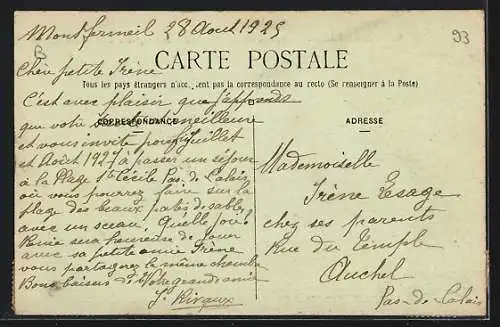 Montfermeil 28 Aout 1925
93
B
CARTE POSTALE
Chère petite Irène
Tous les pays étrangers n'acceptent pas la correspondance au recto (Se renseigner à la Poste)
C'est avec plaisir que j'apprends
que votre santé est meilleure
CORRESPONDANCE
et vous invite pour Juillet
et Août 1927 à passer un séjour
à la Plage Ste Cécile Pas de Calais
où vous pourrez faire sur la
plage des beaux patés de sable
avec un sceau. Quelle joie!
sera heureuse de jouer
avec sa petite amie Irène
vous partagerez la même chambre
Bons baisers de Votre grande amie
J. Rivaux
ADRESSE
Mademoiselle
Irène Lesage
chez ses parents
Rue du Temple
Auchel
Pas-de-Calais